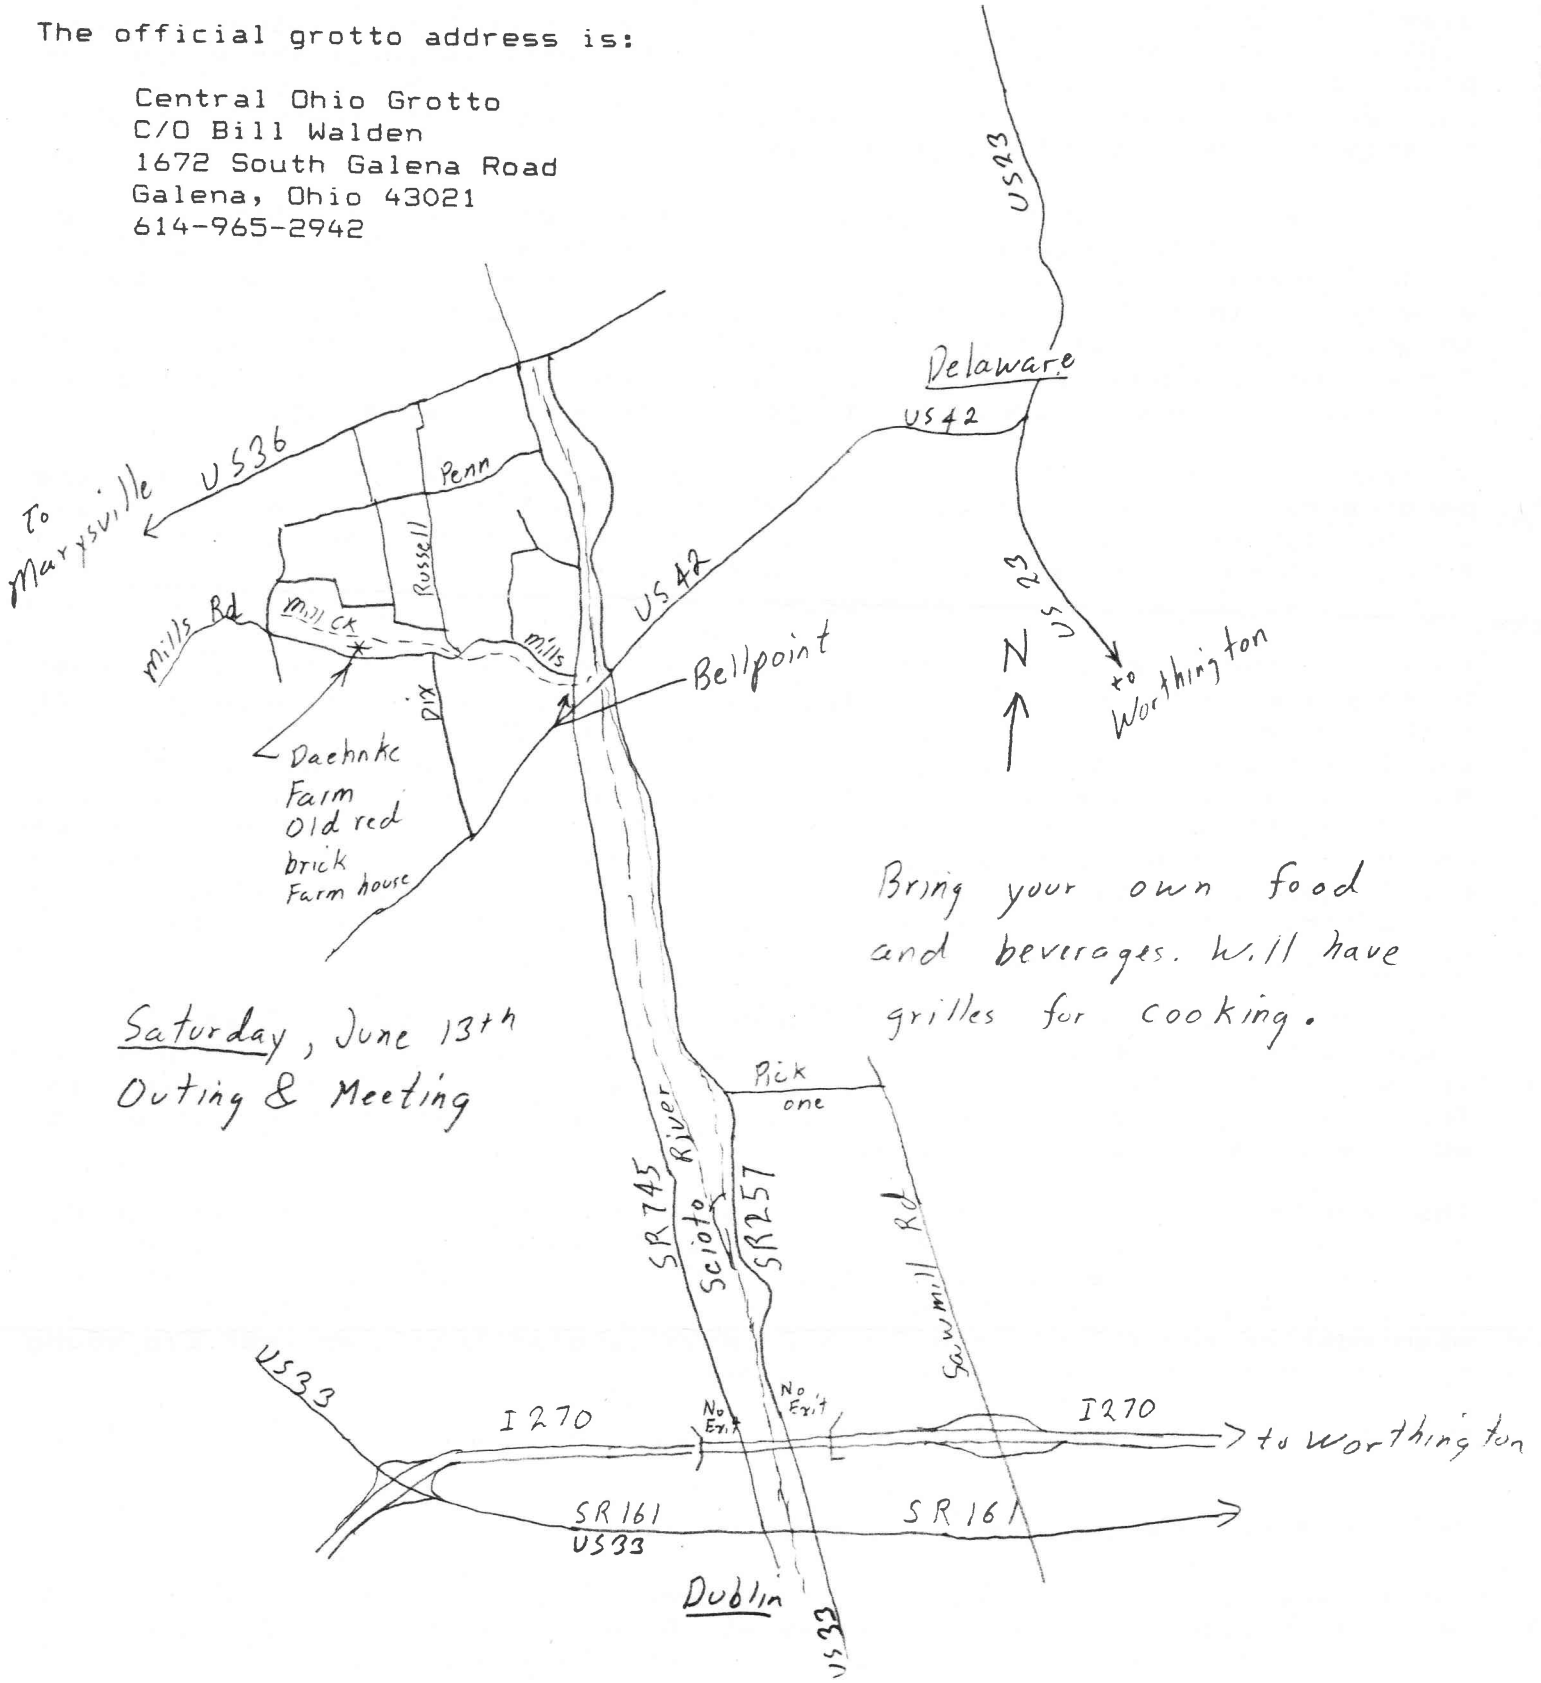 The official grotto address is:
Central Ohio Grotto
C/O Bill Walden
1672 South Galena Road
Galena, Ohio 43021
614-965-2942
US23
Delaware
US42
US36
To
Marysville
Penn
Russell
US42
US 23
to
Worthington
N
Mills Rd
Mill CK
Mills
Bellpoint
Dix
Daehnke
Farm
Old red
brick
Farm house
Bring your own food
and beverages. Will have
grilles for cooking.
Saturday, June 13th
Outing & Meeting
Pick
one
SR745
Scioto River
SR257
Sawmill Rd
US33
No
Exit
No
Exit
I270
I270
to Worthington
SR161
US33
SR161
Dublin
US33